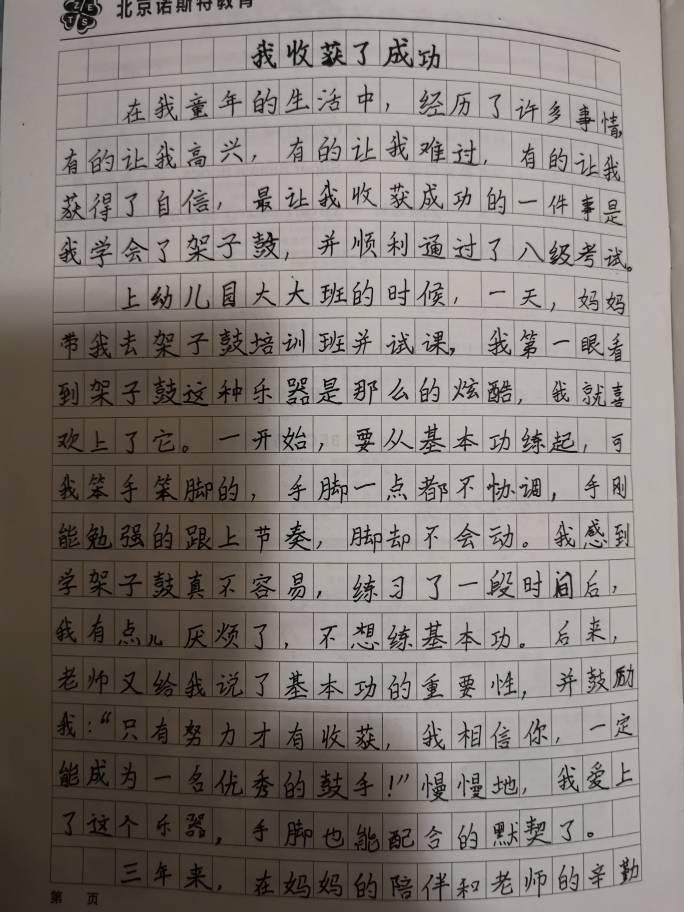 北京诺斯特教育
我收获了成功
在我童年的生活中，经历了许多事情，
有的让我高兴，有的让我难过，有的让我
获得了自信，最让我收获成功的一件事是
我学会了架子鼓，并顺利通过了八级考试。
上幼儿园大大班的时候，一天，妈妈
带我去架子鼓培训班并试课，我第一眼看
到架子鼓这种乐器是那么的炫酷，我就喜
欢上了它。一开始，要从基本功练起，可
我笨手笨脚的，手脚一点都不协调，手刚
能勉强的跟上节奏，脚却不会动。我感到
学架子鼓真不容易，练习了一段时间后，
我有点儿厌烦了，不想练基本功。后来，
老师又给我说了基本功的重要性，并鼓励
我：“只有努力才有收获，我相信你，一定
能成为一名优秀的鼓手！”慢慢地，我爱上
了这个乐器，手脚也能配合的默契了。
三年来，在妈妈的陪伴和老师的辛勤
第 页